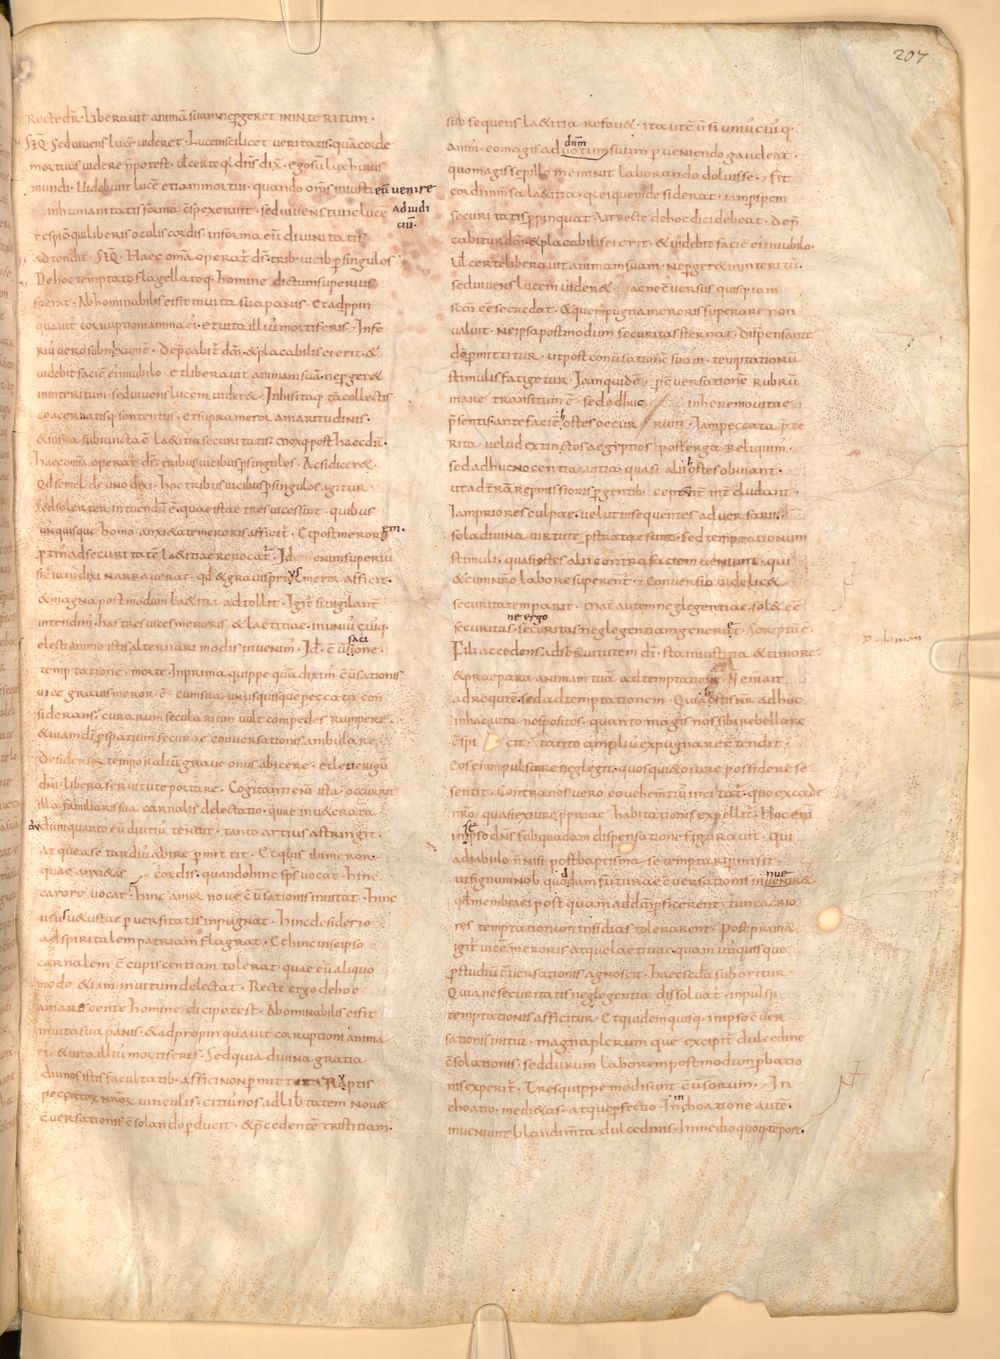 207
Recte dr̄. Liberavit animā suam ne pergeret in interitum.
Seq̄. Sed vivens lucē videret. Lucem scilicet veritatis quā corde
mortuus videre n̄ potest. Vl̄ certe qd̄ dn̄s dix̄. ego sū lux huius
mundi. Videbunt lucē etiam mortui. quando om̄s iniusti eū venire
in humanitatis forma c̄spexerint. sed vivens tunc lucē ad iudi
ciū.
respic̄ qui liberis oculis cordis in forma eū divinitatis
adtendit. Seq̄. Haec om̄a operat̄ d̄s trib. vicib. p singulos
De hoc temptato flagellatoq. homine dictum superius
fuerat. Abhominabilis ei fit in vita sua panis. Et adppin
quavit corruptioni anima ei. et vita illiū mortiferis. Infe
riū vero subiunxim̄. Depcabit̄ dm̄. & placabilis ei erit. &
videbit faciē ei in iubilo. et liberavit animam suā ne perger&
in interitum. sed vivens lucem vider&. In his itaq. tā collectis
coacervatisq. sententiis. et supra meror amaritudinis.
& infra subiuncta ē la&itia securitatis. moxq. post haec dr̄.
haec om̄a operat̄ d̄s. tribus vicibus p singulos. Ac si dicer&.
Qd̄ semel de uno dixi. hoc tribus vicibus p singulos agitur.
Sed solerter intuendū ē. quae istae tres vices sint. quibus
unusquisque homo anxi&ate meroris afficit̄. Et post merorēm.
p tm̄ ad securitatē la&itiae revocat̄. Id enim superiū
sic̄ iam dixi narraverat. qd̄ & gravis prius meror afficit.
& magna post modum la&itia adtollit. Igit̄ si vigilant̄
intendim̄. has tres vices meroris & laetitiae. in uniū cuiq.
electi animo istis alternari modis invenim̄. Id ē c̄versione.
saci
temptatione. morte. In prima quippe quā diximū c̄versionis
vice gravis meror ē. cum sua unusquisque peccata con
siderans. curarum secularium vult compedes rumpere.
& viam dī p spatium securae conversationis ambulare.
Desideriorū temporaliū grave onus abicere. et leve iugū
dn̄i libera servitute portare. Cogitanti eni ista. occurrit
illa familiaris sua carnalis delectatio. quae inv&erata
dum quanto eū diutiū tenuit. tanto artius astringit.
atque a se tardiū abire p mittit. Et quis ibi meror.
quae anxi&as cordis. quando hinc sp̄s vocat. hinc
caro revocat. hinc amor novae c̄versationis invitat. hinc
usus v&ustae perversitatis inpugnat. Hinc desiderio
ad spiritalem patriam flagrat. Et hinc in se ipso
carnalem c̄cupiscentiam tolerat. quae eū aliquo
modo &iam invitum delectat. Recte ergo de hoc
amarescente homine dici potest. Abominabilis ei fit
in vita sua panis. & adpropinquavit corruptioni anima
ei. & vita illiū mortiferis. Sed quia divina gratia
diu nos istis facultatib. affici non p mittit. Ruptis
peccatorū nr̄orū vinculis. citiū nos ad lib̄tatem novae
c̄versationis c̄solando pducit. & p̄cedentē tristitiam.
subsequens la&itia refov&. ita ut ē ū si uniū cuiū q.
anim̄. eo magis ad votum suum p veniendo gaudeat.
dn̄m
quo magis se p illo meminit laborando doluisse. Fit
cordi inm̄sa la&itia. q̄ ei quem desiderat. iam p spem
securitatis ppinquat. Ut recte de hoc dici debeat. Dep̄
cabitur dm̄. & placabilis ei erit. & videbit faciē ei in iubilo.
Vl̄ certe liberavit animam suam. Ne perger& in interitū.
sed vivens lucem vider&. ac ne c̄versus quisquiam
sc̄m eē se credat. & quem pugna meroris superare non
valuit. Ne ipsa post modum securitas sternat. Dispensante
dō p mittitur. ut post convsationē suam. temptationū
stimulis fatigetur. Iam quidē p c̄versationē rubrū
mare transitum ē. sed adhuc in heremo vitae
p̄sentis. ante faciē hostes occurrunt. Iam peccata p̄te
rita. velud extinctos aegyptios post terga reliquim̄.
sed adhuc nocentia vitia. quasi alii hostes obviant.
ut ad t̄rā repmissionis pgentib. ceptum iter cludant.
Iam priores culpae. velut insequentes adversarii.
sola divina virtute pstratae sunt. Sed temptationum
stimuli. quasi hostes alii contra faciem veniunt. qui
& cum nr̄o labore superent̄. Conversio videlic&
securitatem parit. Mat̄ autem neglegentiae. sol& eē
securitas. ne ergo securitas neglegentiam gener&. Scriptū ē.
Fili accedens ad servitutem dī. sta in iustitia & timore.
& praepara animam tuā ad temptationē. Ne in ait
ad requiē. sed ad temptationem. Quia hostis nr̄ adhuc
in hac vita nos positos. quanto magis nos sibi rebellare
c̄spicit. tanto ampliū expugnare c̄tendit.
Eos eni pulsare neglegit. quos qui&o iure possidere se
sentit. Contra nos vero eo vehem̄tiū incitat̄. quo ex corde
nr̄o. quasi ex iure ppriae habitationis expellit̄. Hoc eni
in se ipso dn̄s sub quadam dispensatione figuravit. Qui
a diabolo n̄ nisi post baptisma se temptari p misit.
ut signum nob. quoddam futurae c̄versationis inveniret.
qd̄ membra ei post quam ad dm̄ pficerent. tunc acrio
res temptationum insidias tolerarent. Post primā
igit̄ vicē meroris atque laetitiae. quam unusquisque
p studiū c̄versationis agnoscit. haec s&da suboritur
Quia ne securitatis neglegentia dissolvat̄. inpulsu
temptationis afficitur. Et quidem quisq. in ipso c̄ver
sationis initiū. magna plerumque excipit̄ dulcedine
c̄solationis. sed durum laborem post modum pbatio
nis experit̄. Tres quippe modi sunt c̄versorum. In
choatio. medi&as. atque pfectio. In inchoatione autē.
inveniunt blandim̄ta dulcedinis. In medio quoq. tēpore.